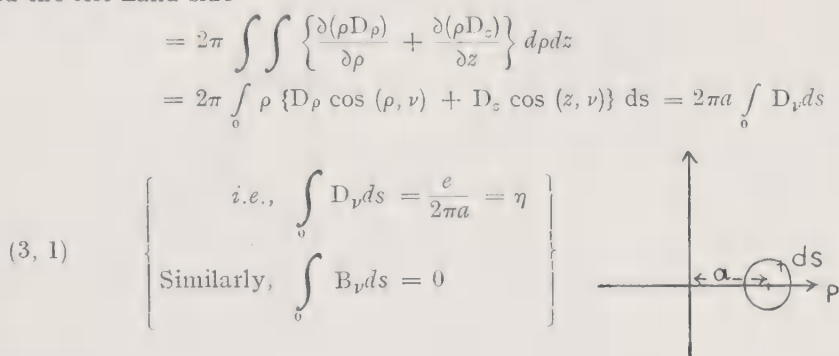 = 2π ∫ ∫ {∂(ρD_ρ)/∂ρ + ∂(ρD_z)/∂z} dρdz
= 2π ∫₀ ρ {D_ρ cos (ρ, ν) + D_z cos (z, ν)} ds = 2πa ∫₀ D_ν ds
i.e., ∫₀ D_ν ds = e/2πa = η
(3, 1)
Similarly, ∫₀ B_ν ds = 0
ds
a
ρ